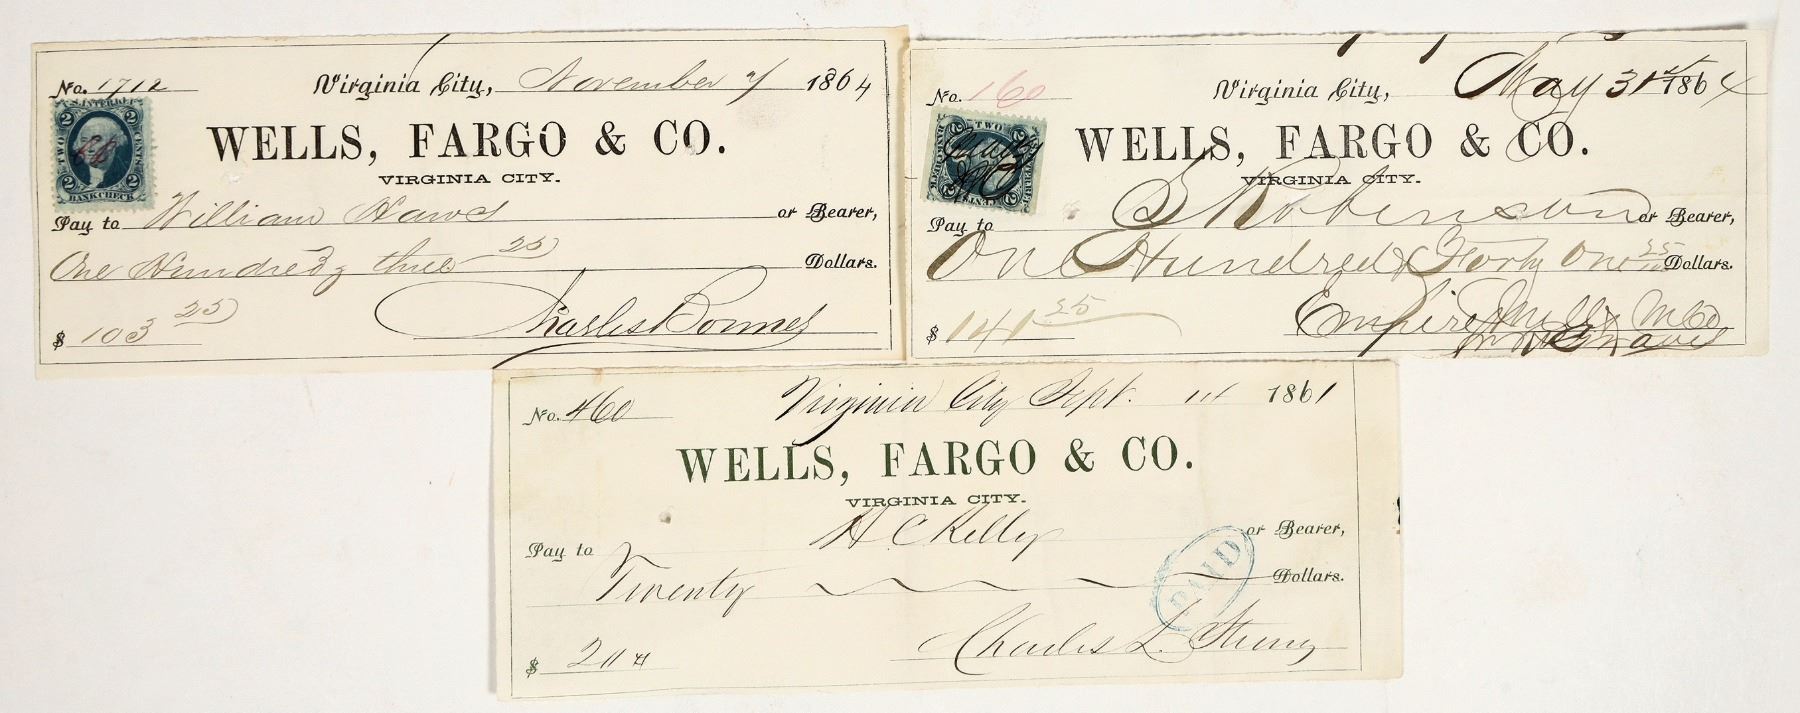 No. 1712 Virginia City, November 7 1864
U.S. INTER. REV.
2 2
TWO CENTS
2 2
BANK CHECK
CB
WELLS, FARGO & CO.
VIRGINIA CITY.
Pay to William Haws or Bearer,
One Hundred & three 25 Dollars.
$ 103 25 Charles Bonner
No. 160 Virginia City, May 31st 1864
TWO
CENTS
WELLS, FARGO & CO.
VIRGINIA CITY.
Pay to Robinson or Bearer,
One Hundred & Forty One 25 Dollars.
$ 141 25 Empire Mill & M Co
No. 460 Virginia City Sept. 1st 1861
WELLS, FARGO & CO.
VIRGINIA CITY.
Pay to H C Kelly or Bearer,
Twenty Dollars.
PAID
$ 20 Charles L. Strong